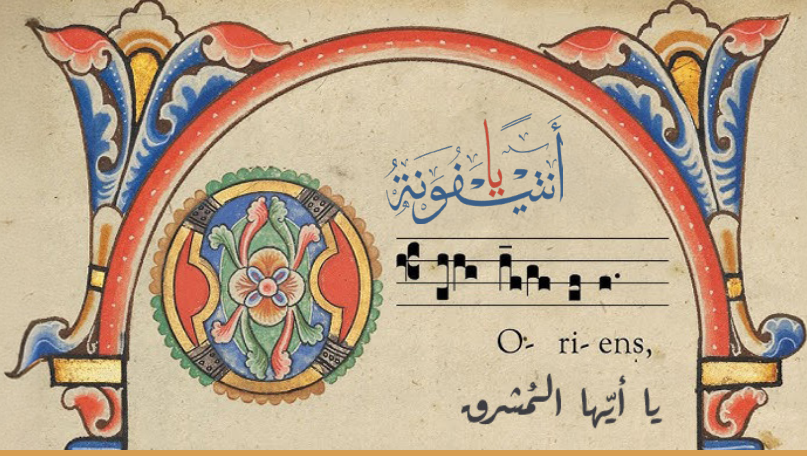 أنتيفونة يا
O- ri- ens,
يا أيّها المُشرق